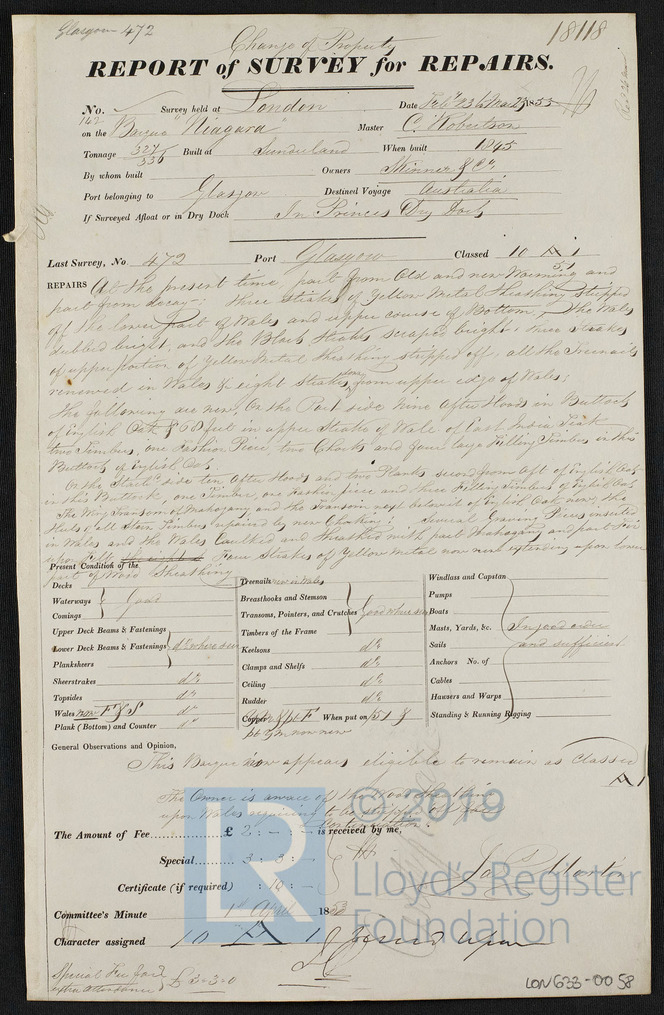 Glasgow 472
18118
Change of Property
REPORT of SURVEY for REPAIRS.
No. Survey held at London Date Feb 23 & Mar 1853
on the Barque "Niagara" Master C. Robertson
Tonnage 327 336 Built at Sunderland When built 1845
By whom built Owners & Co
Port belonging to Glasgow Destined Voyage Australia
If Surveyed Afloat or in Dry Dock In Princes Dry Dock
Last Survey, No. 472 Port Glasgow Classed 10 A 1
REPAIRS At the present time, part from Old and new Worming and
part from decay; three strakes of Yellow Metal Sheathing stripped
off the lower part of Wales and upper course of Bottom, The Wales
dubbed bright, and the Black Strakes scraped bright three strakes
of upper portion of Yellow Metal Sheathing stripped off, all the Treenails
renewed in Wales & eight Strakes down from upper edge of Wales;
The following are new, On the Port side Nine After Hoods in Buttock
of English Oak, & 68 feet in upper Strake of Wale of East India Teak
two Timbers, one Fashion Piece two Chocks and four large Filling Timbers in this
Buttock of English Oak.
On the Starb side ten After Hoods and two Planks second from Aft of English Oak
in this Buttock, one Timber, one Fashion piece and three Filling Timbers of English Oak
The Wing Transom of Mahogany, and the Transom next below it of English Oak new, the
Heels of all Stern Timbers repaired by new Chocking; Several Graving Pieces inserted
in Wales and the Wales Caulked and Sheathed with part Mahogany and part Fir
upon Felt, Four Strakes of Yellow Metal now new extending upon lower
part of Wood Sheathing
Present Condition of the
Decks
Waterways
Comings
Good
Upper Deck Beams & Fastenings
Lower Deck Beams & Fastenings
Planksheers
do where seen
Sheerstrakes do
Topsides do
Wales now F & S do
Plank (Bottom) and Counter do
Treenails new in Wales
Breasthooks and Stemson
Transoms, Pointers, and Crutches
Timbers of the Frame
Good where seen
Keelsons do
Clamps and Shelfs do
Ceiling do
Rudder do
Copper & pt F When put on /51 &
pt Ym now new
Windlass and Capstan
Pumps
Boats
Masts, Yards, &c.
Sails
Anchors No. of
Cables
Hawsers and Warps
Standing & Running Rigging
In good order
and sufficient
General Observations and Opinion,
This Barque now appears eligible to remain as Classed
A 1
The Owner is aware of the Wood Sheathing
upon Wales requiring to be stripped off for
Continuation.
The Amount of Fee............ £ 2 : - : - is received by me,
Special......... 3 : 3 : -
Certificate (if required) : 10 : -
Committee's Minute 1st April 1853
Character assigned 10 A 1
Special Fee for
extra attendance } £ 3-3-0
© 2019
LR
Lloyd's Register
Foundation
LON633-0058